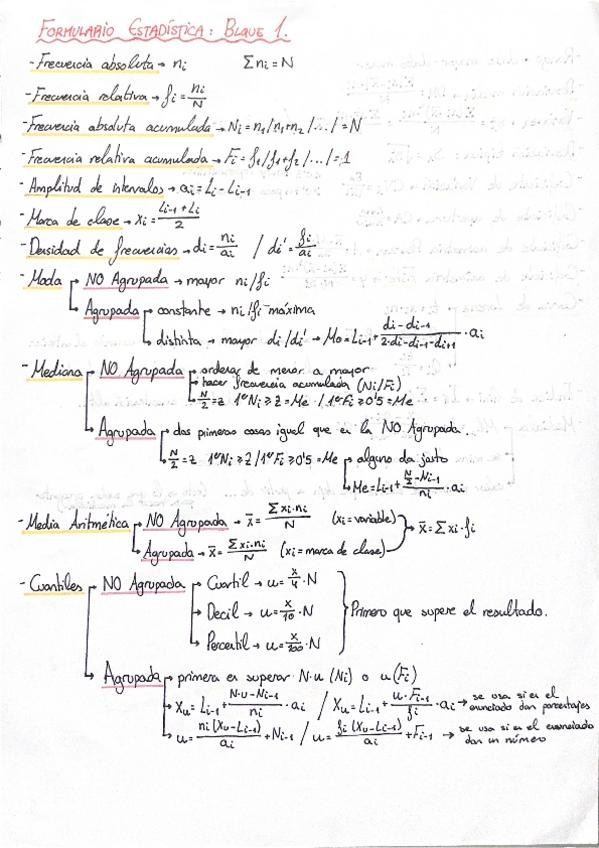 FORMULARIO ESTADÍSTICA: BLOQUE 1.
- Frecuencia absoluta → ni   Σni = N
- Frecuencia relativa → fi = ni/N
- Frecuencia absoluta acumulada → Ni = n1/n1+n2/.../ = N
- Frecuencia relativa acumulada → Fi = f1/f1+f2/.../ = 1
- Amplitud de intervalos → ai = Li - Li-1
- Marca de clase → xi = (Li-1 + Li)/2
- Densidad de frecuencias → di = ni/ai / di' = fi/ai
- Moda → NO Agrupada → mayor ni/fi
→ Agrupada → constante → ni/fi máxima
→ distinta → mayor di/di' → Mo = Li-1 + (di - di-1)/(2·di - di-1 - di+1) · ai
- Mediana → NO Agrupada → ordenar de menor a mayor
→ hacer frecuencia acumulada (Ni/Fi)
→ N/2 = z 1º Ni ≥ z = Me / 1º Fi ≥ 0'5 = Me
→ Agrupada → dos primeras cosas igual que en la NO Agrupada.
→ N/2 = z 1º Ni ≥ z / 1º Fi ≥ 0'5 = Me → alguno da justo
→ Me = Li-1 + (N/2 - Ni-1)/ni · ai
- Media Aritmética → NO Agrupada → x̄ = Σxi·ni/N (xi = variable)
→ x̄ = Σxi·fi
→ Agrupada → x̄ = Σxi·ni/N (xi = marca de clase)
- Cuantiles → NO Agrupada → Cuartil → u = x/4 · N
→ Decil → u = x/10 · N } Primero que supere el resultado.
→ Percentil → u = x/100 · N
→ Agrupada → primera en superar N·u (Ni) o u (Fi)
→ Xu = Li-1 + (N·u - Ni-1)/ni · ai / Xu = Li-1 + (u · Fi-1)/fi · ai → se usa si en el enunciado dan porcentajes
→ u = ni(Xu - Li-1)/ai + Ni-1 / u = fi(Xu - Li-1)/ai + Fi-1 → se usa si en el enunciado dan un número